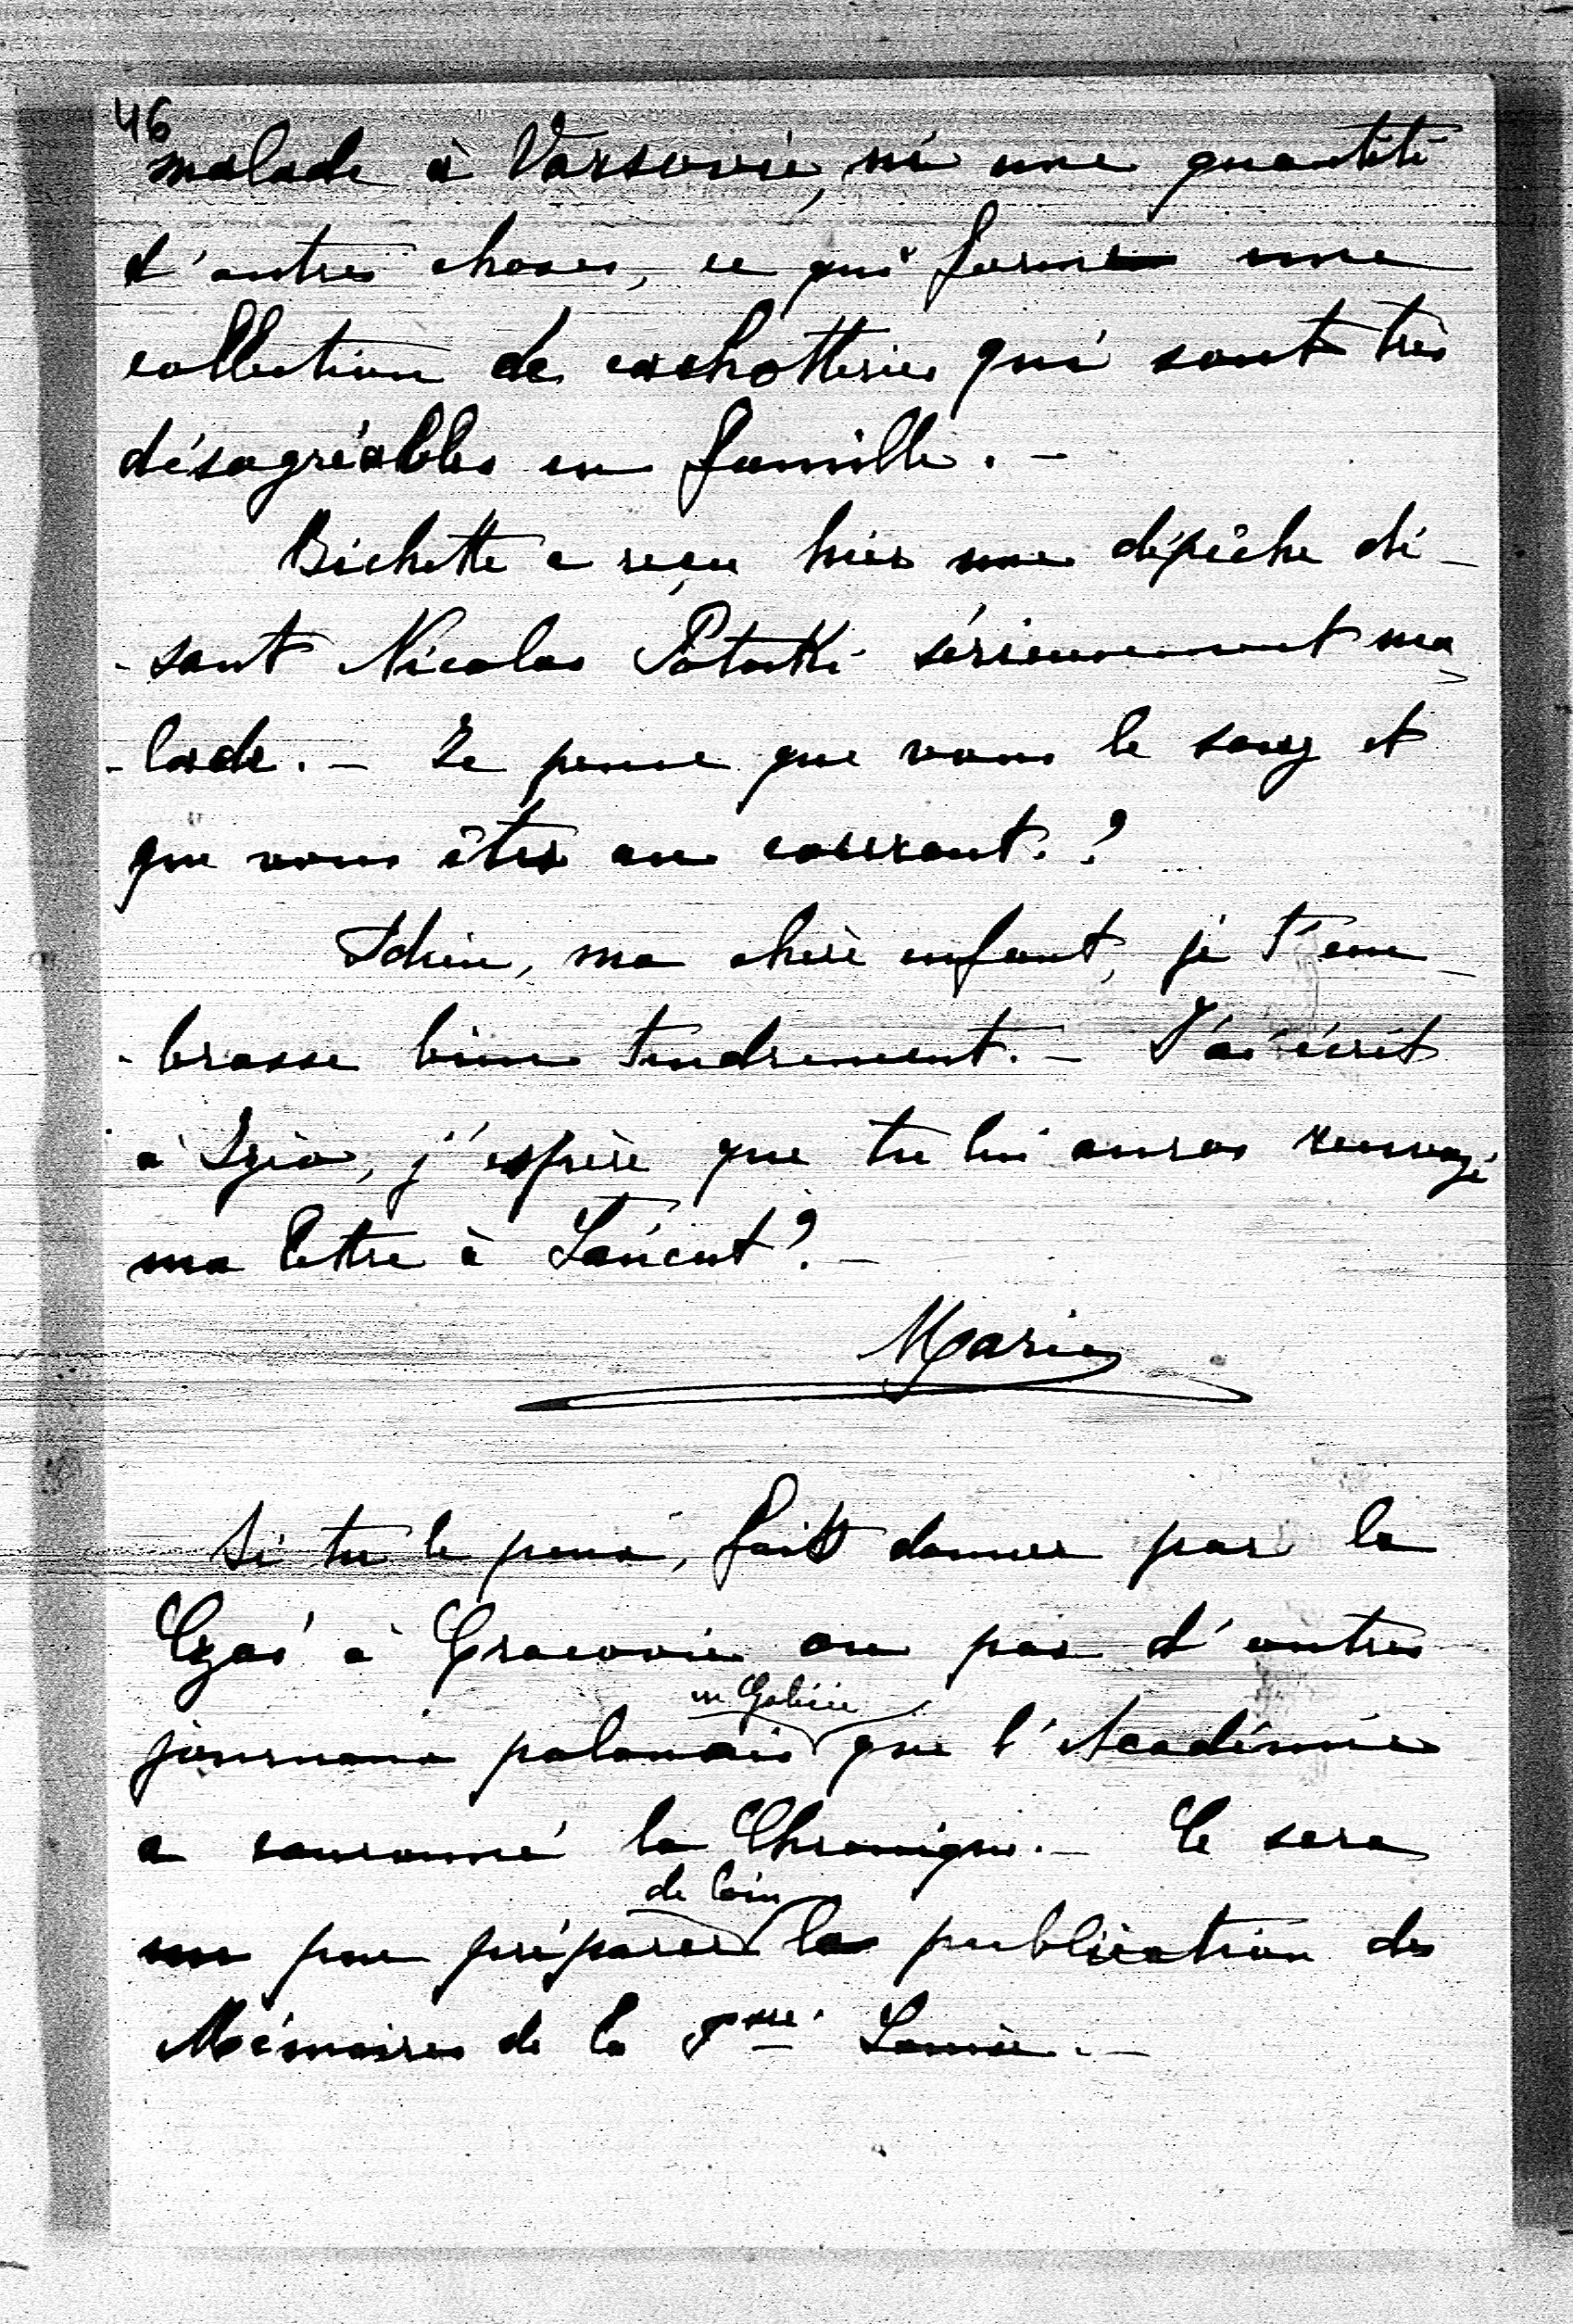 46
malade à Varsovie, ni une quantité
d'autres choses, ce qui forme une
collection de cachotteries qui sont très
désagréables en famille. -
Bichette a reçu hier une dépêche di-
-sant Nicolas Potocki sérieusement ma-
-lade. - Je pense que vous le savez et
que vous êtes au courant. ?
Adieu, ma chère enfant, je t'em-
-brasse bien tendrement. - J'ai écrit
à Izio, j'espère que tu lui auras renvoyé
ma lettre à Łańcut ? -
Marie
Si tu le peux, fait donner par le
Czas à Cracovie ou par d'autres
en Galicie
journaux polonais que l'Académie
a couronné la Chronique. - Ce sera
de loin
pour préparer la publication des
Mémoires de la Psse. Louise. -